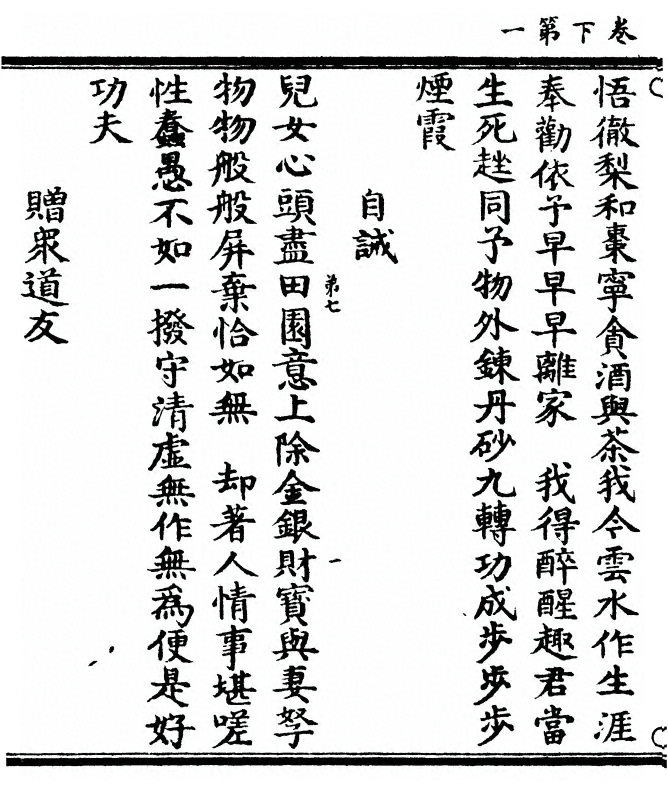 卷下第一
悟徹梨和棗寧貪酒與茶我今雲水作生涯
奉勸依予早早早離家　我得醉醒趣君當
生死趖同予物外鍊丹砂九轉功成步步步
煙霞
自誡
第七
兒女心頭盡田園意上除金銀財寶與妻孥
物物般般屏棄恰如無　却著人情事堪嗟
性蠢愚不如一撥守清虛無作無爲便是好
功夫
贈眾道友